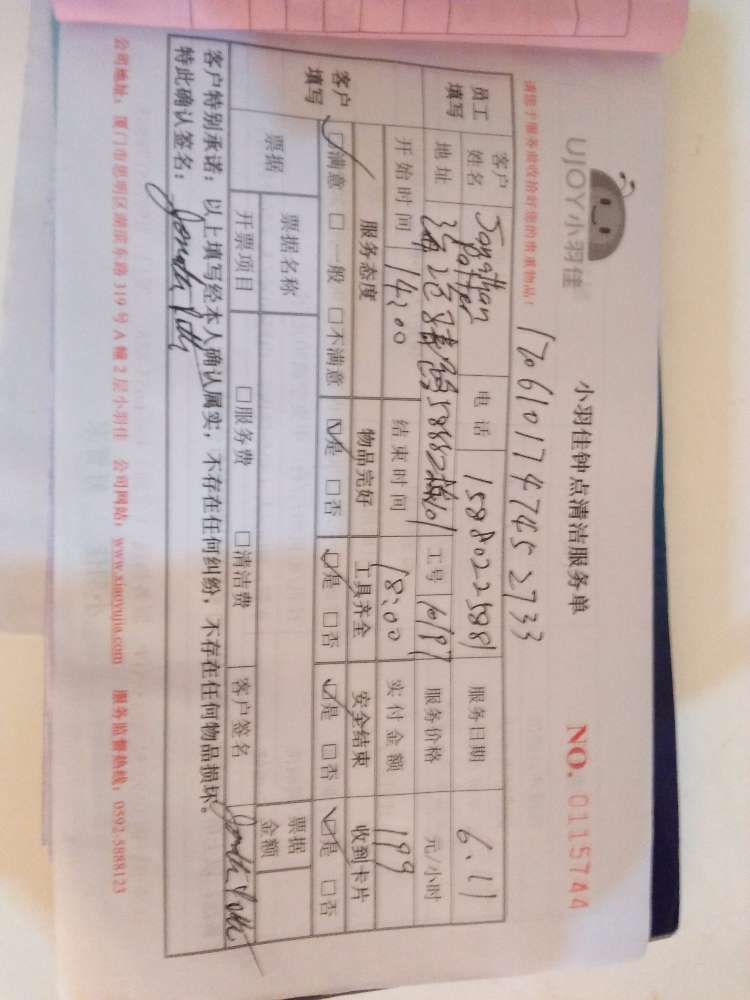 UJOY小羽佳
小羽佳钟点清洁服务单
NO. 0115744
请您于服务前收拾好您的贵重物品！
1706101747452733
员工填写
客户姓名 Jonathan Potter 电话 15880225881 服务日期 6.11
地址 工号 服务价格 元/小时
开始时间 14:00 结束时间 18:00 实付金额 199
客户填写
服务态度 物品完好 工具齐全 安全结束 收到卡片
☑满意 □一般 □不满意 ☑是 □否 ☑是 □否 ☑是 □否 ☑是 □否
票据 票据名称 票据金额
开票项目 □服务费 □清洁费 客户签名
客户特别承诺：以上填写经本人确认属实，不存在任何纠纷，不存在任何物品损坏。
特此确认签名：
公司地址：厦门市思明区湖滨东路319号A幢2层小羽佳 公司网站：www.xiaoyujia.com 服务监督热线：0592-5888123